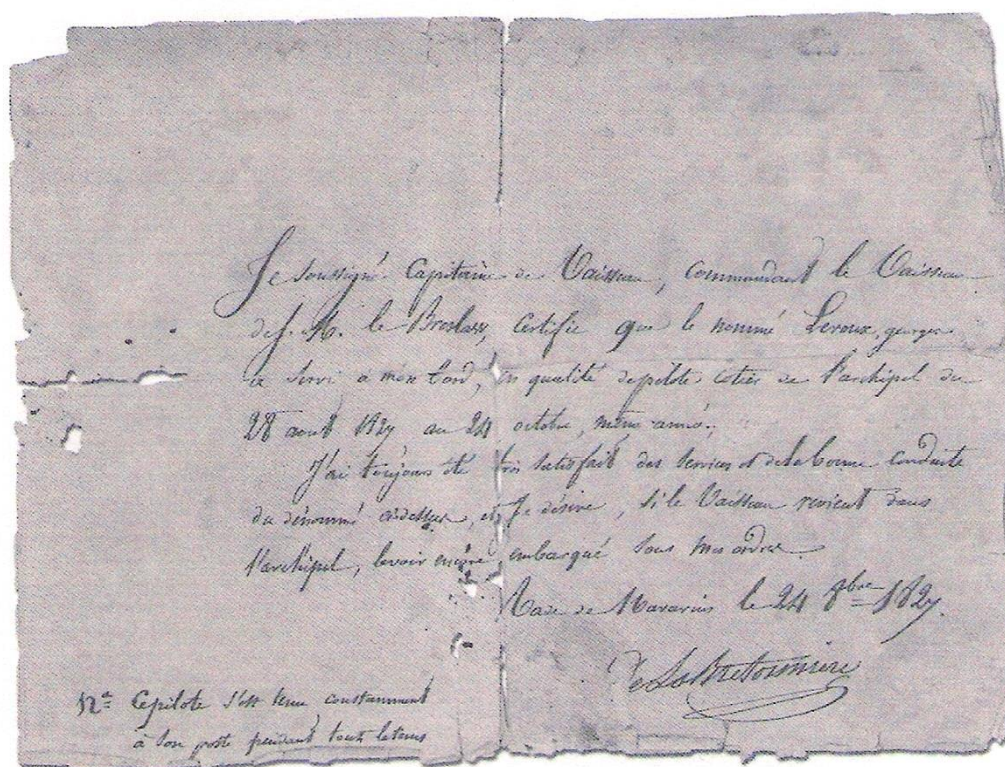 Je soussigné Capitaine de Vaisseau, commandant le Vaisseau
de S. M. le Breslaw, certifie que le nommé Leroux, georges
a servi à mon bord, en qualité de pilote cotier de l'archipel du
28 aout 1827 au 24 octobre, même année.
J'ai toujours été très satisfait des services et de la bonne conduite
du dénommé cidessus, et Je désire, si le Vaisseau revient dans
l'archipel, l'avoir encore embarqué sous mes ordres
Rade de Navarin le 24 8bre 1827.
De La Bretonnière
Na Ce pilote s'est tenu constamment
à son poste pendant tout le tems